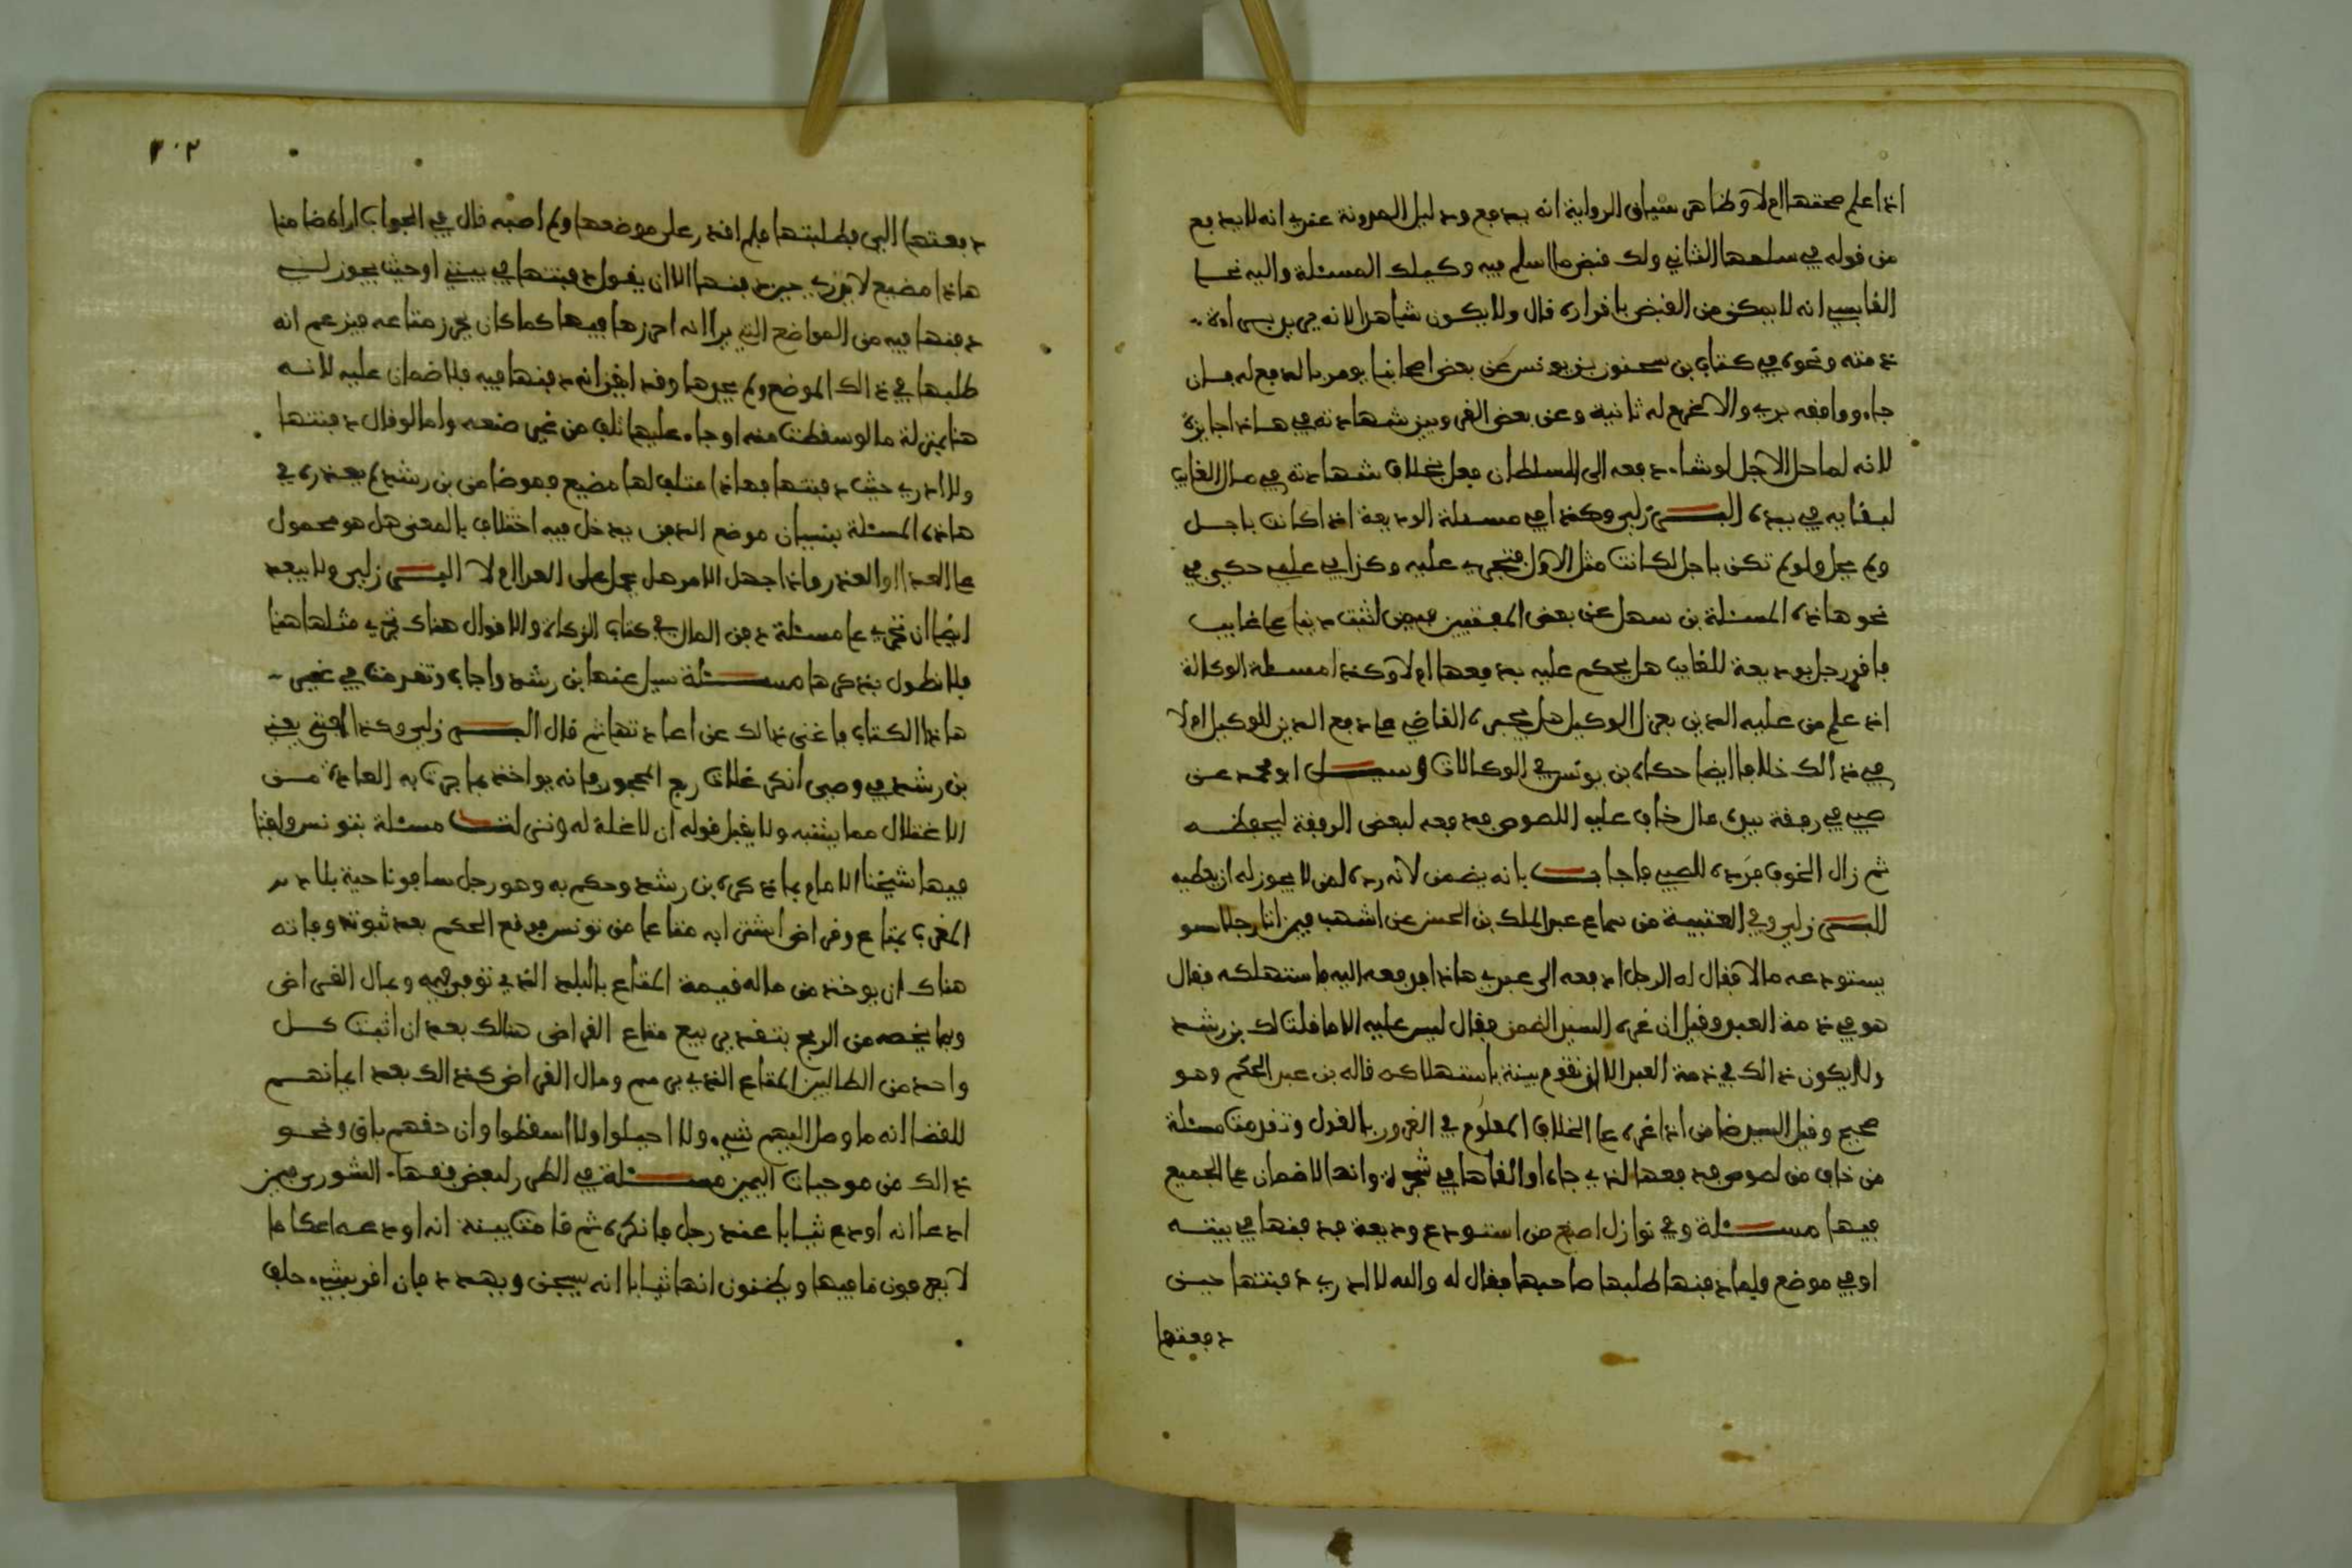 اذا علم صحتها ام لا وظاهر سياق الرواية انه يدفع ودليل المدونة عندي انه لا يدفع
من قوله في سلمها الثاني ولك قبض ما اسلم فيه وكيلك المسئلة واليه نحا
القابسي انه لا يمكن من القبض باقراره قال ولا يكون شاهدا لانه يريد براءة
ذمته ونحوه في كتاب بن سحنون بن يونس عن بعض اصحابنا يومر بالدفع له فان
جاء ووافقه بري والا غرم له ثانية وعن بعض القرويين شهادته في هاذا جايزة
لانه لما حل الاجل لو شاء دفعه الى السلطان فعل بخلاف شهادته في مال الغايب
لبقايه في يده البرزلي وكذا في مسئلة الوديعة اذا كانت باجل
ولم يحل ولو لم تكن باجل لكانت مثل الاول فتجري عليه وكذا في علمي حكى في
نحو هاذه المسئلة بن سهل عن بعض المفتيين فيمن اثبت دينا على غايب
فاقر رجل بوديعة للغايب هل يحكم عليه بدفعها ام لا وكذا مسئلة الوكالة
اذا علم من عليه الدين بعزل الوكيل هل يجبره القاضي على دفع الدين للوكيل ام لا
في ذالك خلافا ايضا حكاه بن يونس في الوكالات وسيل ابو محمد عن
صبي في رفقة بيده مال خاف عليه اللصوص فدفعه لبعض الرفقة ليحفظه
ثم زال الخوف فرده للصبي فاجاب بانه يضمن لانه رده لمن لا يجوز له ان يعطيه
البرزلي وفي العتبية من سماع عبد الملك بن الحسن عن اشهب فيمن اتا رجلا
يستودعه مالا فقال له الرجل ادفعه الى عبدي هاذا فدفعه اليه فاستهلكه فقال
هو في ذمة العبد وقيل ان غره السيد اضمن فقال ليس عليه الا ما قلت لك بن رشد
ولا يكون ذالك في ذمة العبد الا ان تقوم بينة باستهلاكه قاله بن عبد الحكم وهو
صحيح وقيل السيد ضامن اذا غره على الخلاف المعلوم في الغرور بالقول وتقدمت مسئلة
من خاف من لصوص فدفعها لذي جاه او القاها في شجرة وانها لا ضمان على الجميع
فيها مسئلة وفي نوازل اصبغ من استودع وديعة فدفنها في بيته
او في موضع ولما دفنها طلبها صاحبها فقال له والله لا ادري دفنتها حين
دفعتها
٣٠٢
دفعتها الي وطلبتها فلم اقدر على موضعها ولم اصبه قال في الجواب اراه ضامنا
هاذا مضيع لا يدري حين دفنها الا ان يقول دفنتها في بيتي او حيث يجوز لي
دفنها فيه من المواضع التي يرا انه احرزها فيها كما كان يحرز متاعه فيزعم انه
طلبها في ذالك الموضع ولم يجدها وقد ايقن انه دفنها فيه فلا ضمان عليه لانه
هنا بمنزلة ما لو سقطت منه او جاء عليها تلف من غير صنعه واما لو قال دفنتها
ولا ادري حيث دفنتها فهاذا متلف لها مضيع فهو ضامن بن رشد لم يعذره في
هاذه المسئلة بنسيان موضع الدفن يدخل فيه اختلاف بالمعنى هل هو محمول
على العدا او العذر واذا جهل الامر هل يحمل على العدا ام لا البرزلي ولا يبعد
ايضا ان تجري على مسئلة دفن المال في كتاب الزكاة والاقوال هناك تجري مثلها هنا
فلا نطول بذكرها مسئلة سيل عنها بن رشد واجاب وتقدمت في غير
هاذا الكتاب فاغنى ذالك عن اعادتها ثم قال البرزلي وكذا افتى يعني
بن رشد في وصي انكر غلات ربع المحجور فانه يواخذ بما جرت به العادة من
الاغتلال مما يثبته ولا يقبل قوله ان لا غلة له ونزلت مسئلة بتونس وافتا
فيها شيخنا الامام بما ذكره بن رشد وحكم به وهو رجل سافر ناحية بلاد
المغرب بمتاع وقراض اشترى به متاعا من تونس فوقع الحكم بعد ثبوته وفاته
هناك ان يوخذ من ماله قيمة المتاع بالبلد الذي توفي فيه وبمال القراض
وبما يخصه من الربح بتقدير بيع متاع القراض هنالك بعد ان اثبت كل
واحد من الطالبين المتاع الذي برسمه ومال القراض كذالك بعد ايمانهم
للقضا انه ما وصل اليهم شيء ولا احيلوا ولا اسقطوا وان حقهم باق ونحو
ذالك من موجبات اليمين مسئلة في الطرر لبعض فقهاء الشورى فيمن
ادعا انه اودع ثيابا عند رجل فانكره ثم قامت بينة انه اودعه اعكاما
لا يعرفون ما فيها ويظنون انها ثيابا انه يسجن ويهدد فان اقر بشيء حلف